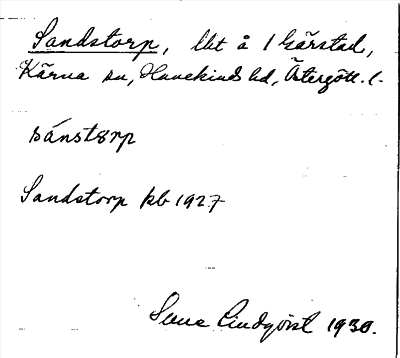 Sandstorp, lht å 1 Gärstad,
Kärna sn, Hanekinds hd, Östergötl. l.
sánstɷrp
Sandstorp kb 1927
Sune Lindqvist 1930.